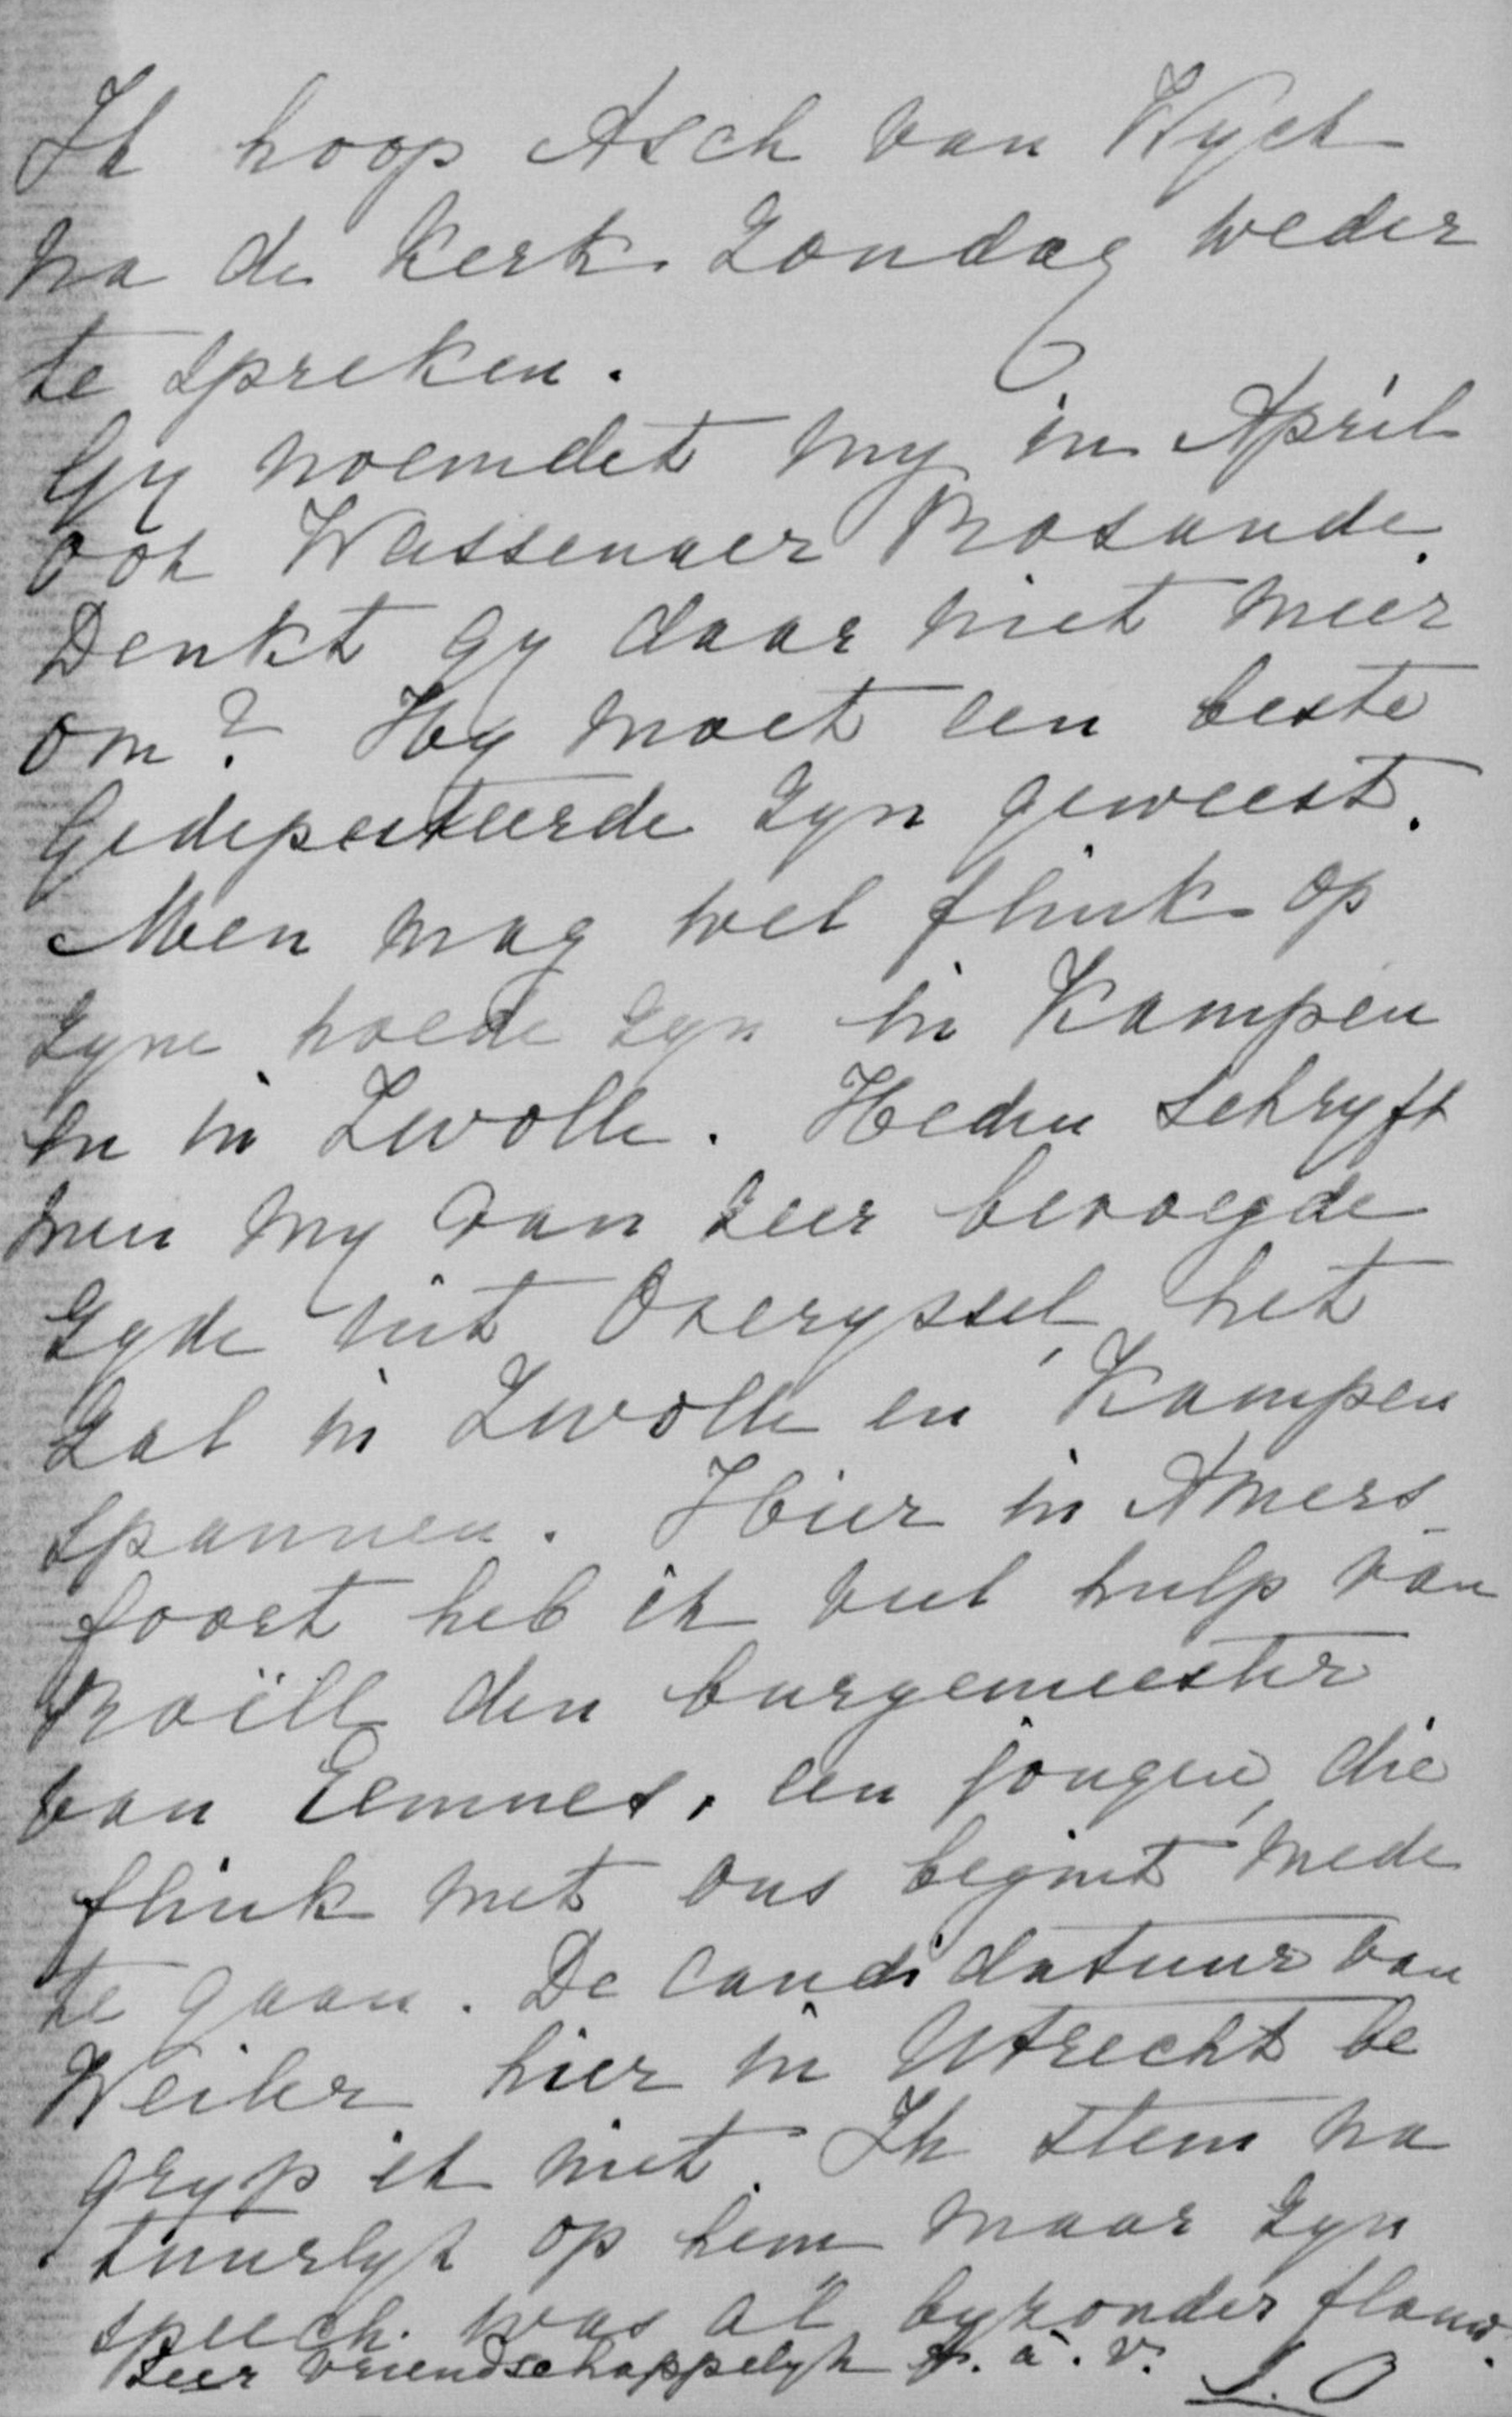 Ik hoop Asch van Wyck
na de kerk Zondag weder
te spreken.
Gy noemdet my in April
ook Wassenaer Rosande.
Denkt gy daar niet meer
om? Hy moet een beste
Gedeputeerde zyn geweest.
Men mag wel flink op
zyne hoede zyn in Kampen
en in Zwolle. Heden schryft
men my van zeer bevoegde
zyde uit Overyssel, het
zal in Zwolle en Kampen
spannen. Hier in Amers-
foort heb ik veel hulp van
Roëll den burgemeester
van Eemnes, een jongen, die
flink met ons begint mede
te gaan. De candidatuur van
Weiler hier in Utrecht be
gryp ik niet. Ik stem na
tuurlyk op hem maar zyn
speech was al byzonder flauw.
Zeer vriendschappelyk t. à. v.
L. O